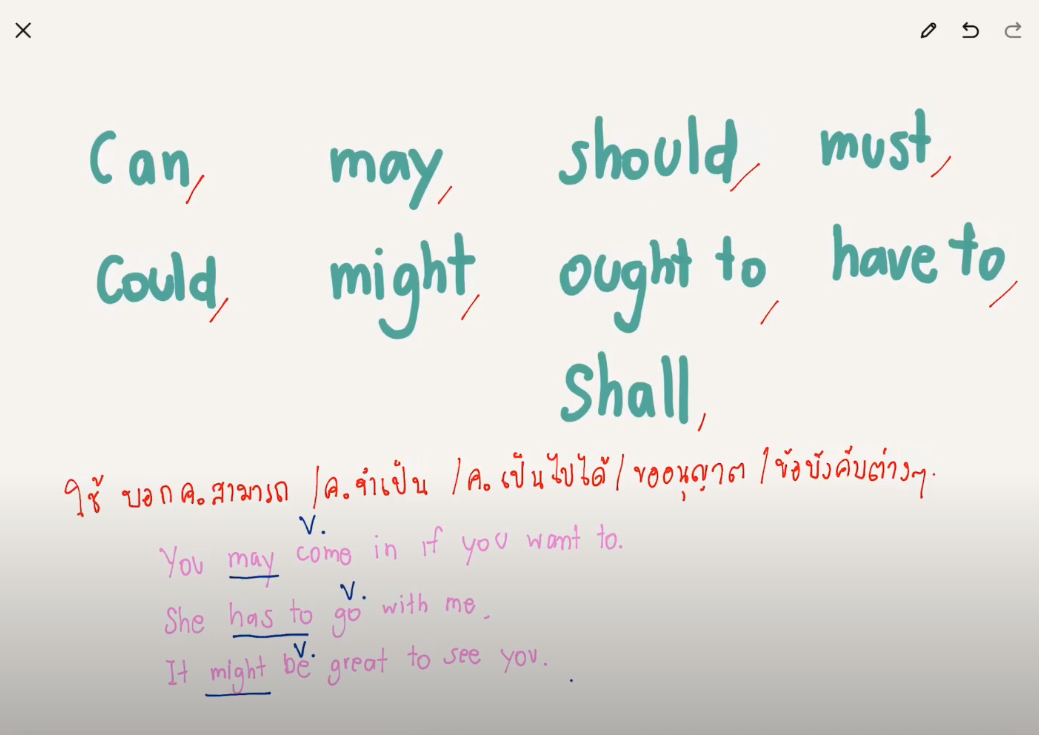 Can, may, should, must,
could, might, ought to, have to,
Shall,
ใช้ บอก ค.สามารถ / ค.จำเป็น / ค.เป็นไปได้ / ขออนุญาต / ข้อบังคับต่างๆ.
V.
You may come in if you want to.
V.
She has to go with me.
V.
It might be great to see you.